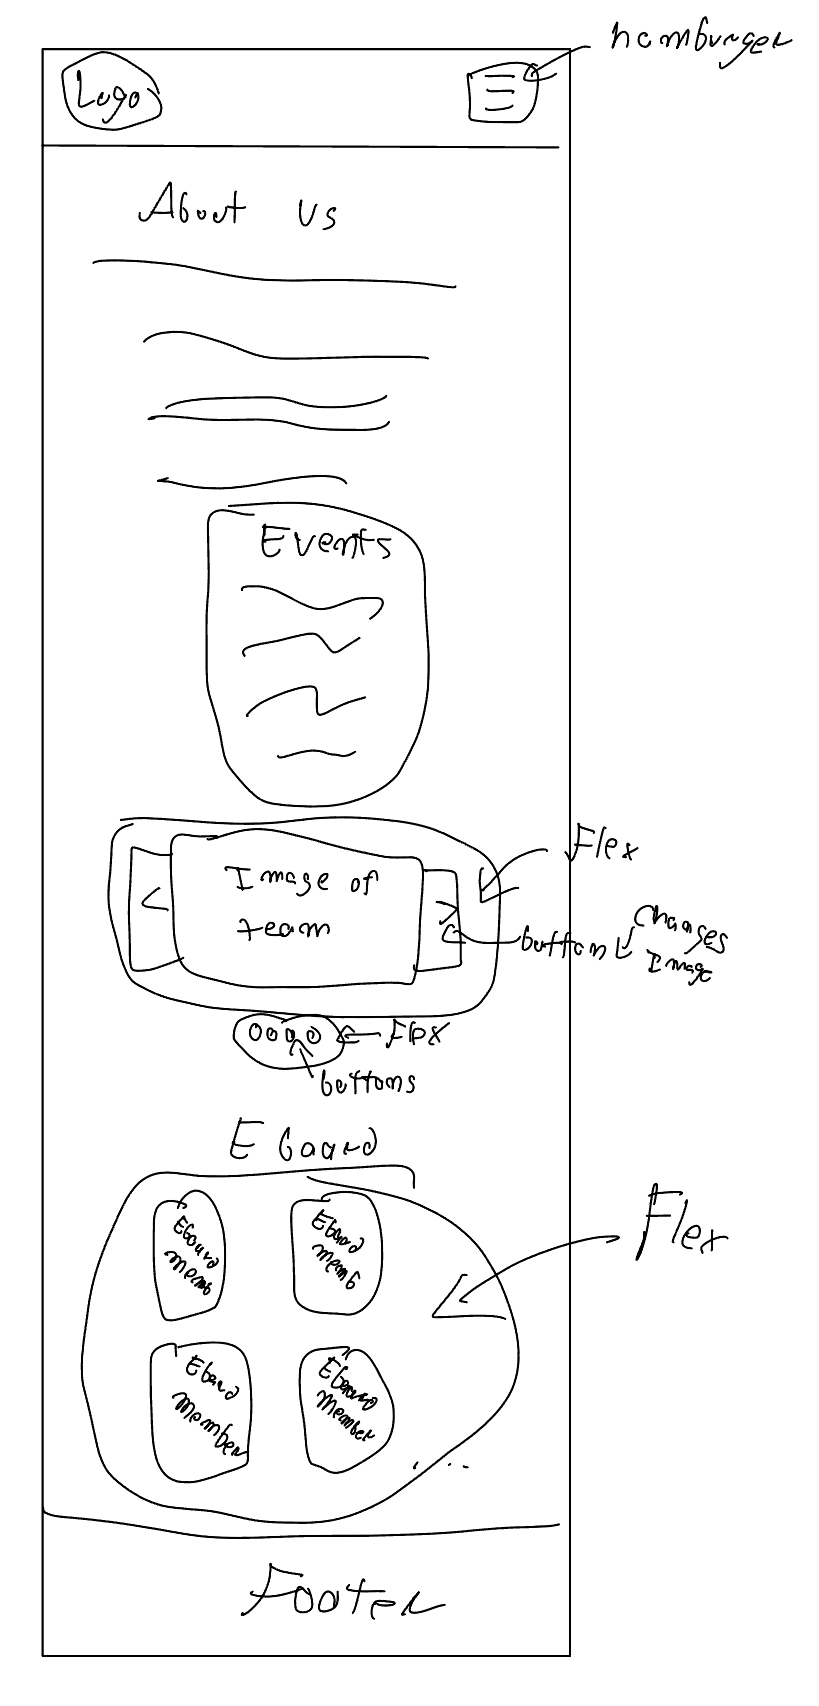 hamburger
Logo
About Us
Events
Flex
Image of
team
<
>
button
Changes
Image
Flex
buttons
E board
Flex
Eboard
memb
Eboard
memb
Eboard
member
Eboard
Member
....
Footer